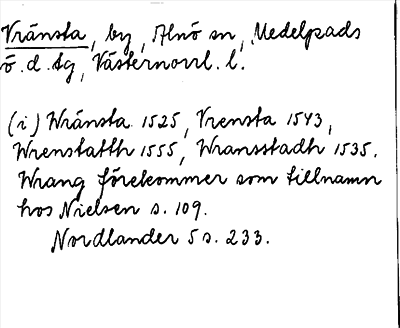 Vränsta, by, Alnö sn, Medelpads
ö. d. tg, Västernorrl. l.
(i) Wränsta 1525, Vrensta 1543,
Wrenstatth 1555, Wransstadh 1535.
Wrang förekommer som tillnamn
hos Nielsen s. 109.
Nordlander 5 s. 233.